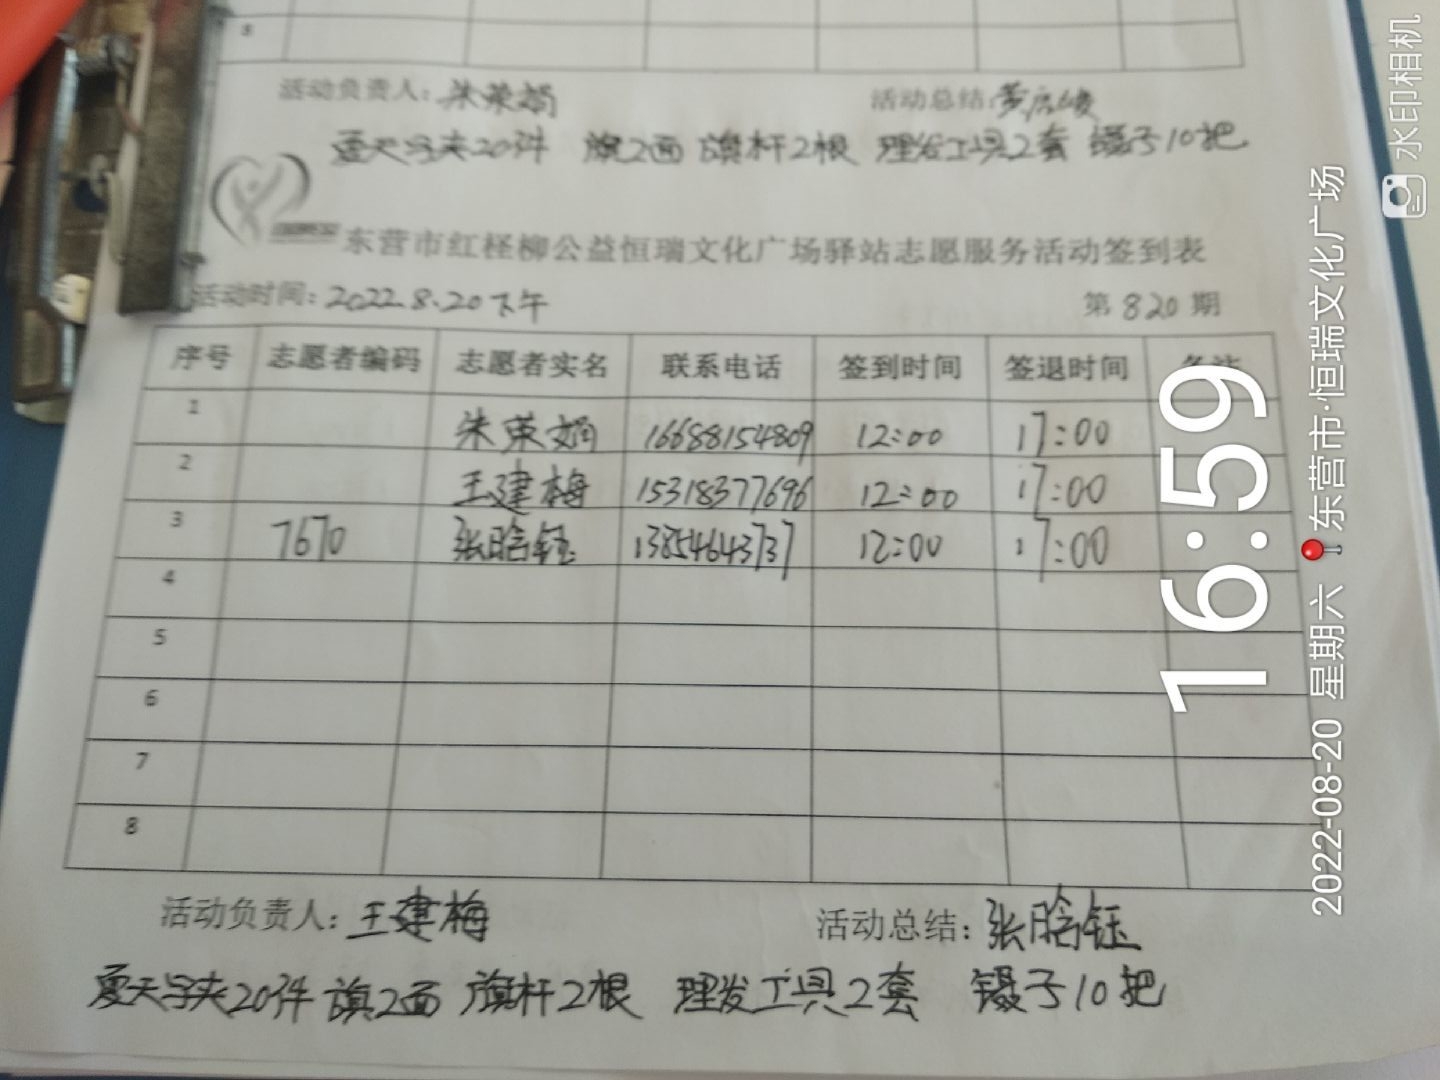 8
活动负责人：朱荣娟 活动总结：
夏天马夹20件 旗2面 旗杆2根 理发工具2套 镊子10把
东营市红柽柳公益恒瑞文化广场驿站志愿服务活动签到表
活动时间：2022.8.20下午 第820期
序号 志愿者编码 志愿者实名 联系电话 签到时间 签退时间 备注
1 朱荣娟 16688154809 12:00 17:00
2 王建梅 15318377696 12:00 17:00
3 7670 张晗钰 13854643737 12:00 17:00
4
5
6
7
8
活动负责人：王建梅 活动总结：张晗钰
夏天马夹20件 旗2面 旗杆2根 理发工具2套 镊子10把
16:59
2022-08-20 星期六 东营市·恒瑞文化广场
水印相机